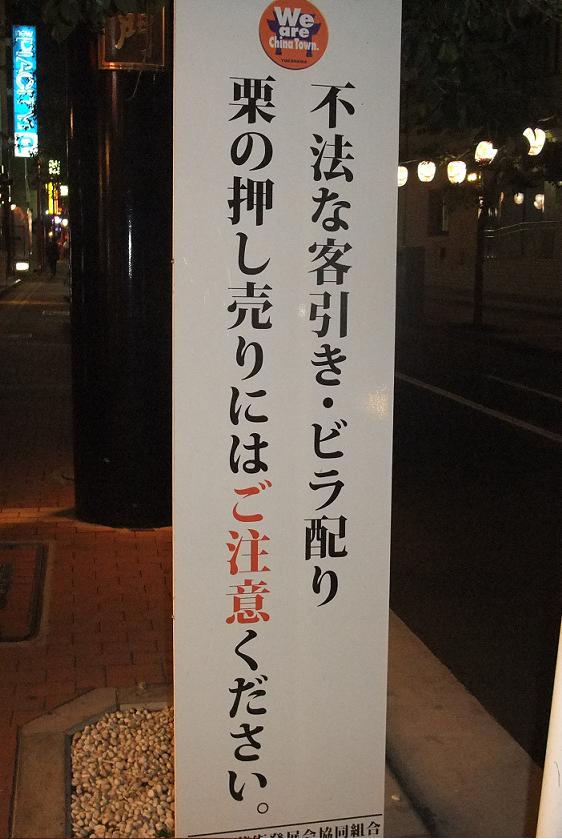 We
are
China Town.
YOKOHAMA
不法な客引き・ビラ配り
栗の押し売りにはご注意ください。
発展会協同組合